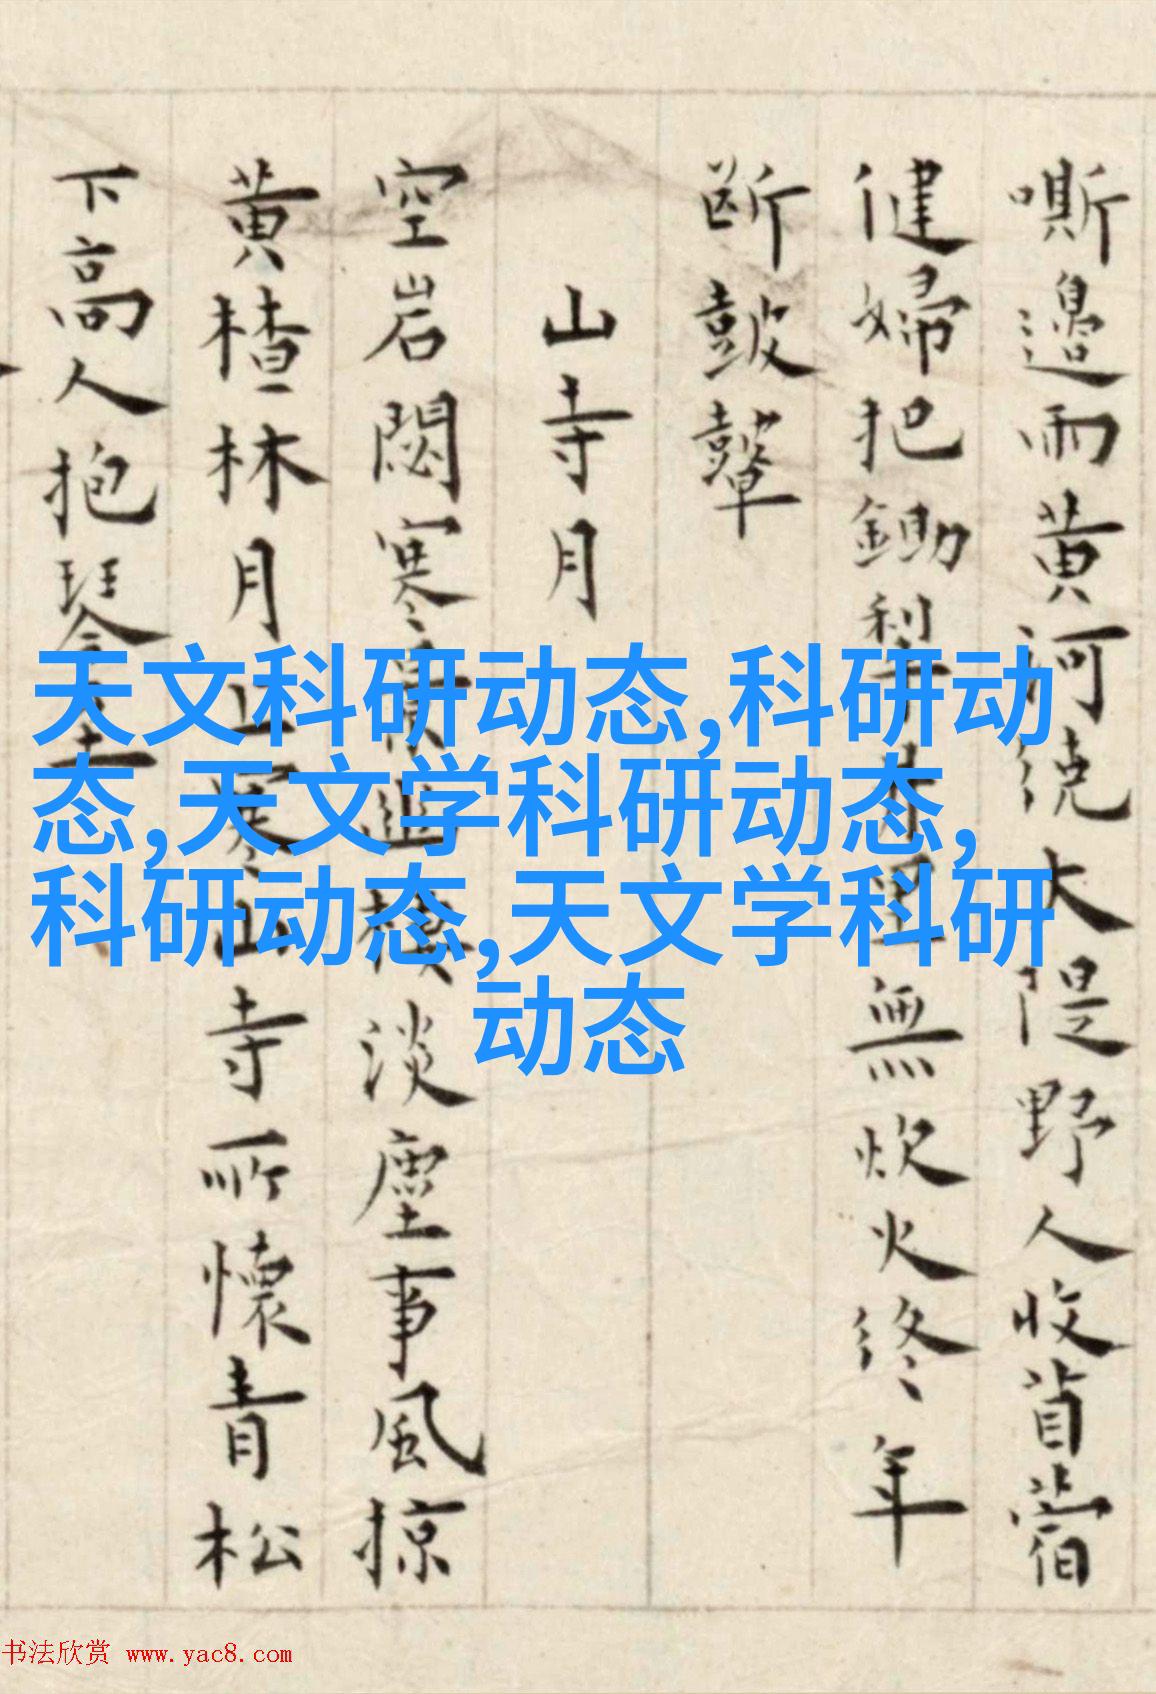 嘶邊雨黄河绕大隄野人收苜蓿
健婦把鋤犁井里無炊火终年
断鼓鼙
山寺月
空岩閟寒棲淡塵事風掠
黄楂林月上寒山寺所懷青松
下高人抱琴至
天文科研动态,科研动
态,天文学科研动态,
科研动态,天文学科研
动态
书法欣赏 www.yac8.com